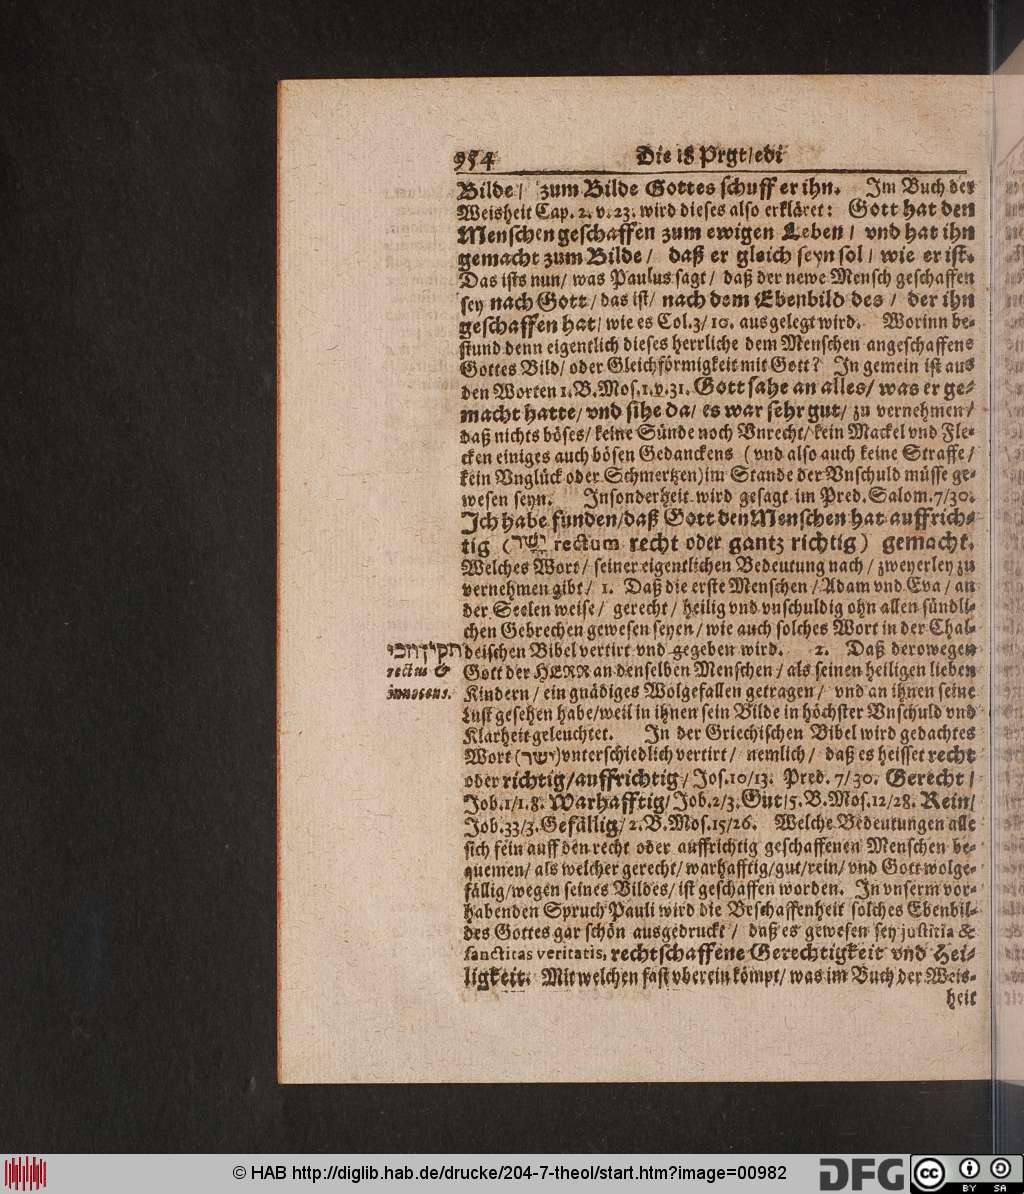 954 Die 18 Prgt/edi
Bilde/ zum Bilde Gottes schuff er ihn. Im Buch der
Weisheit Cap. 2. v. 23. wird dieses also erkläret: Gott hat den
Menschen geschaffen zum ewigen Leben / vnd hat ihn
gemacht zum Bilde / daß er gleich seyn sol / wie er ist.
Das ists nun/ was Paulus sagt / daß der newe Mensch geschaffen
sey nach Gott / das ist / nach dem Ebenbild des / der ihn
geschaffen hat/ wie es Col.3/10. ausgelegt wird. Worinn be-
stund denn eigentlich dieses herrliche dem Menschen angeschaffene
Gottes Bild/ oder Gleichförmigkeit mit Gott? In gemein ist aus
den Worten 1. B. Mos. 1. v. 31. Gott sahe an alles/ was er ge-
macht hatte/ vnd sihe da/ es war sehr gut/ zu vernehmen/
daß nichts böses/ keine Sünde noch Vnrecht/ kein Mackel vnd Fle-
cken einiges auch bösen Gedanckens (vnd also auch keine Straffe /
kein Vnglück oder Schmertzen) im Stande der Vnschuld müsse ge-
wesen seyn. Insonderheit wird gesagt im Pred. Salom. 7/30.
Ich habe funden/daß Gott den Menschen hat auffrich-
tig (ישר rectum recht oder gantz richtig) gemacht.
Welches Wort / seiner eigentlichen Bedeutung nach / zweyerley zu
vernehmen gibt / 1. Daß die erste Menschen / Adam vnd Eva / an
der Seelen weise / gerecht / heilig vnd vnschuldig ohn allen sündli-
chen Gebrechen gewesen seyen / wie auch solches Wort in der Chal-
deischen Bibel vertirt vnd gegeben wird. 2. Daß derowegen
rectus &
innocens.
Gott der HERR an denselben Menschen / als seinen heiligen lieben
Kindern / ein gnädiges Wolgefallen getragen / vnd an ihnen seine
Lust gesehen habe/weil in ihnen sein Bilde in höchster Vnschuld vnd
Klarheit geleuchtet. In der Griechischen Bibel wird gedachtes
Wort (ישר) vnterschiedlich vertirt / nemlich / daß es heisset recht
oder richtig/auffrichtig / Jos. 10/13. Pred. 7/30. Gerecht /
Job. 1/1. 8. Warhafftig/ Job. 2/3. Gut/5. B. Mos. 12/28. Rein/
Job. 33/3. Gefällig/ 2. B. Mos. 15/26. Welche Bedeutungen alle
sich fein auff den recht oder auffrichtig geschaffenen Menschen be-
quemen/ als welcher gerecht/ warhafftig/gut/rein/ vnd Gott wolge-
fällig/wegen seines Bildes/ ist geschaffen worden. In vnserm vor-
habenden Spruch Pauli wird die Beschaffenheit solches Ebenbil-
des Gottes gar schön ausgedruckt / daß es gewesen sey justitia &
sanctitas veritatis, rechtschaffene Gerechtigkeit vnd Hei-
ligkeit. Mit welchen fast vberein kömpt/ was im Buch der Weis-
heit
© HAB http://diglib.hab.de/drucke/204-7-theol/start.htm?image=00982
DFG
cc BY SA